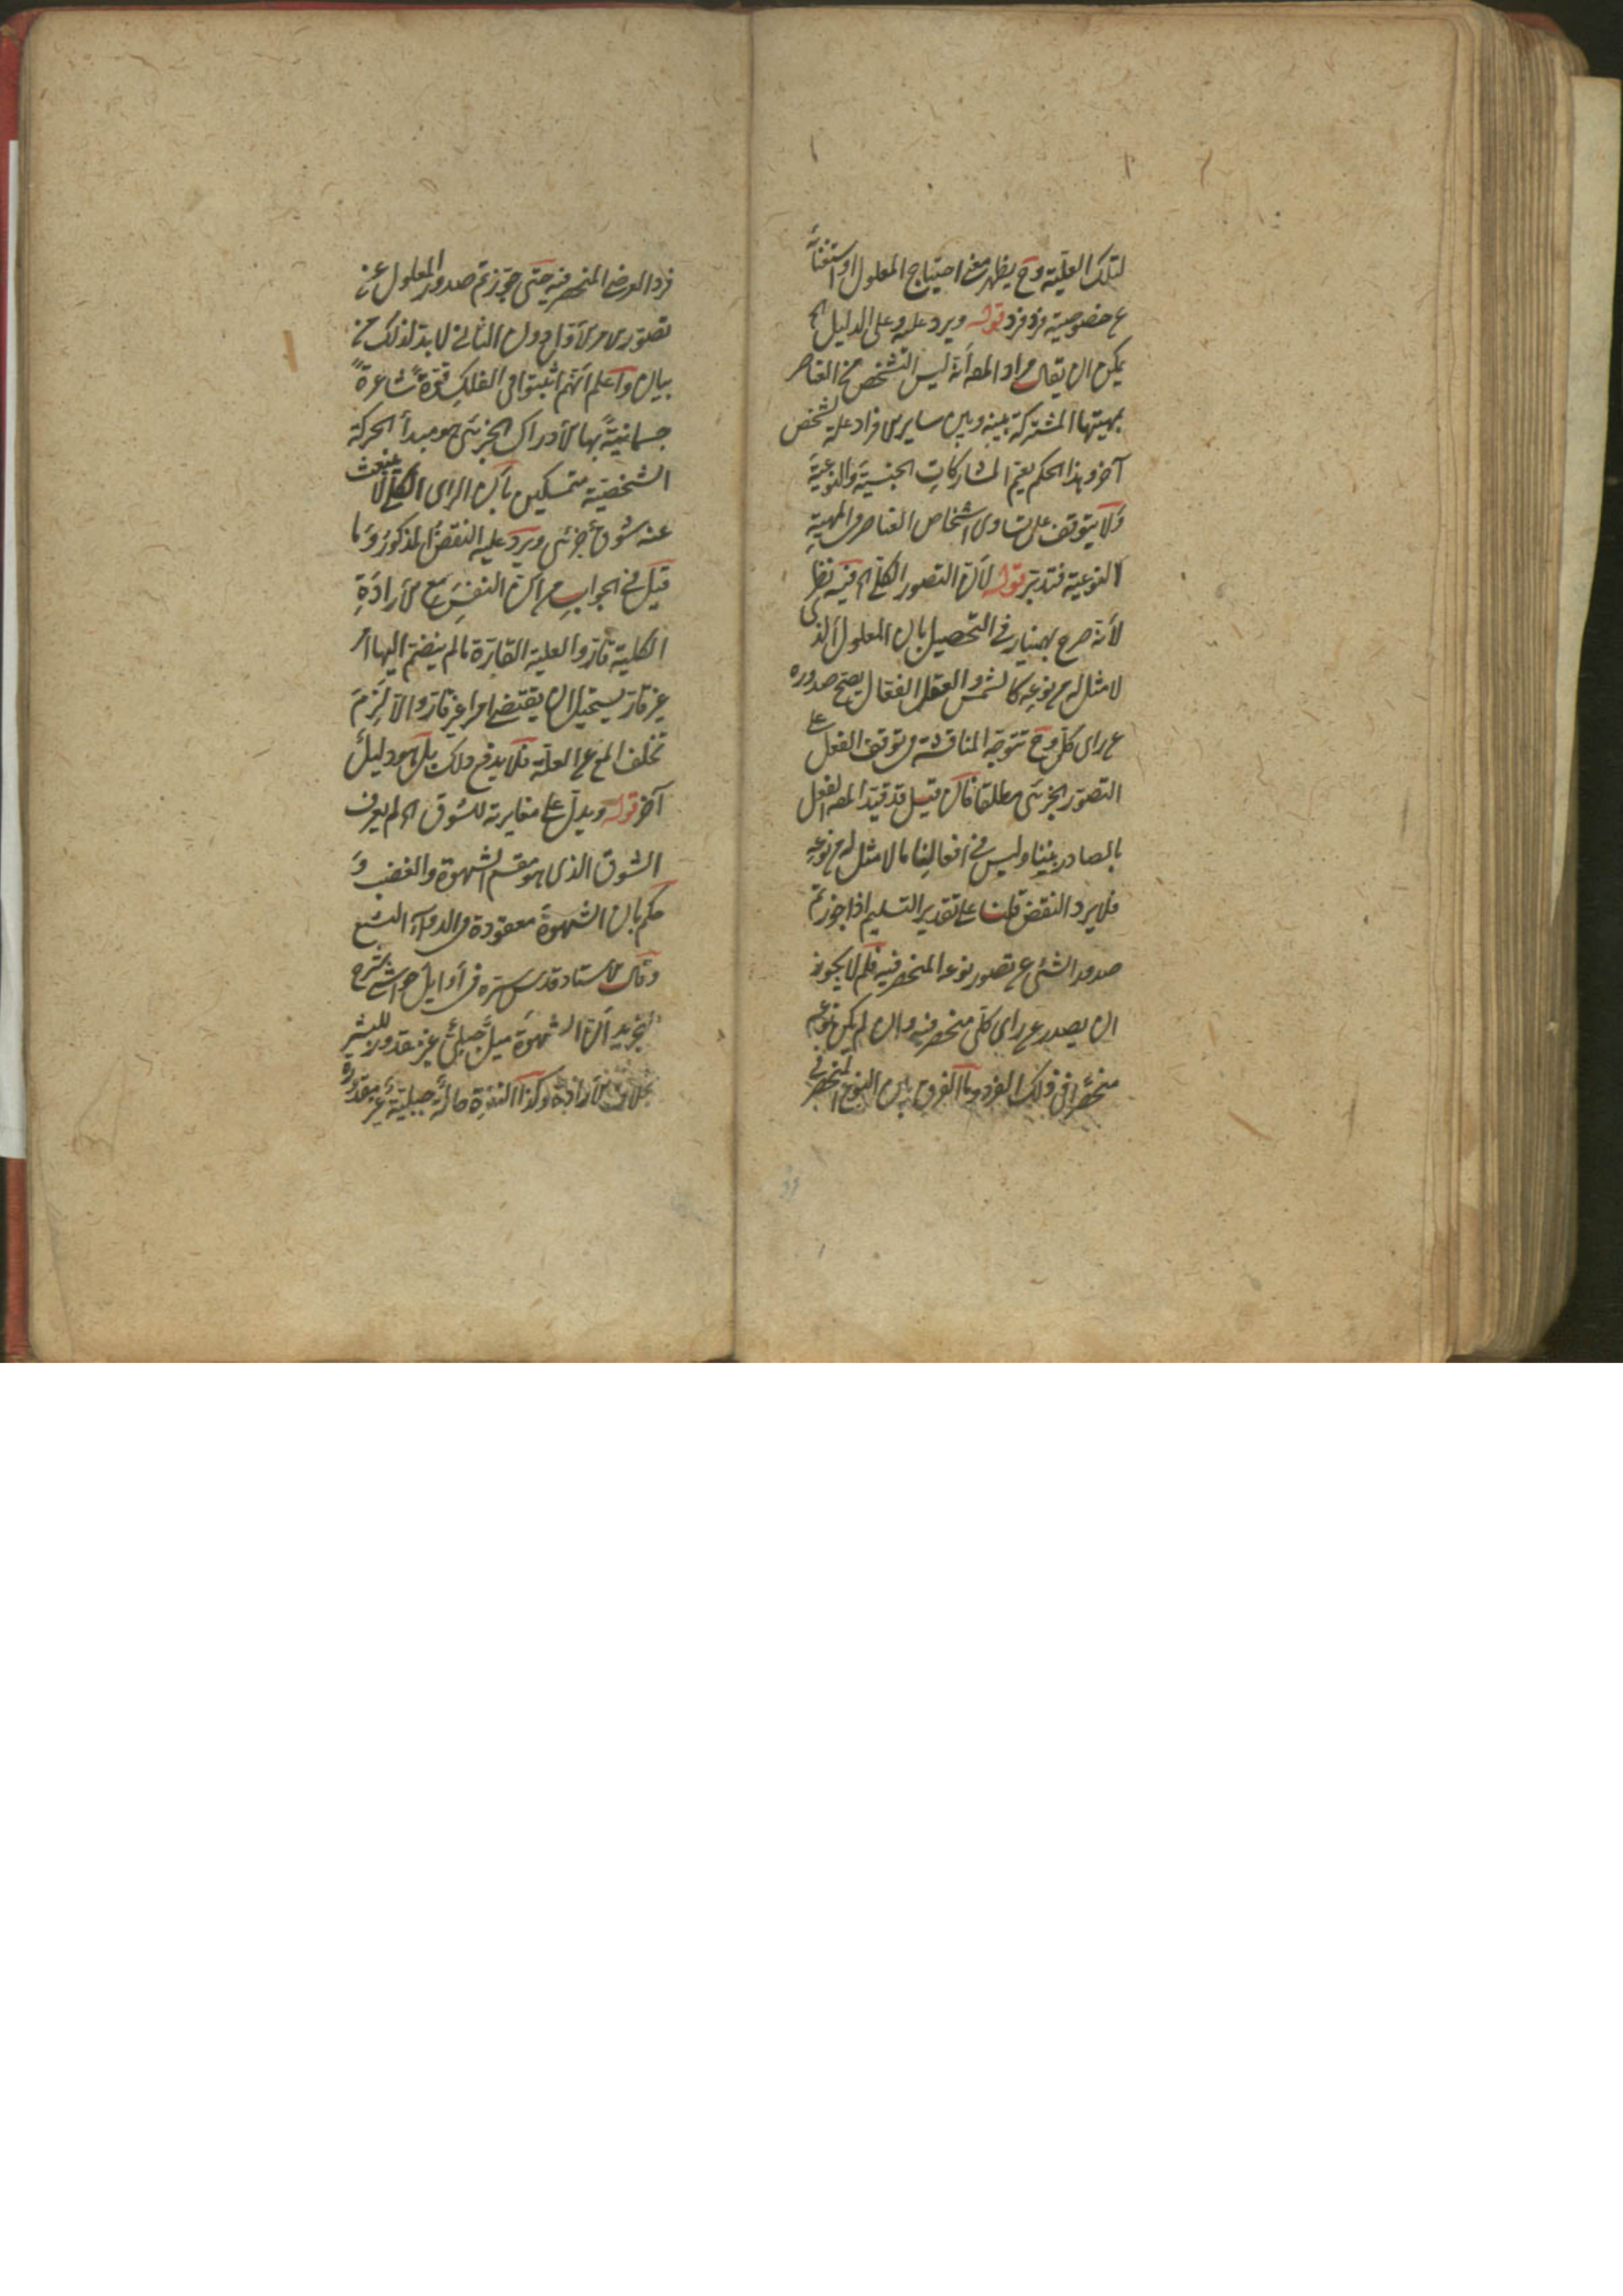 لتلك العلية وح يظهر معنى احتياج المعلول او استغنائه
ع خصوصية فرد فرد قوله ويرد عليه وعلى الدليل الخ
يمكن ان يقال مراد المصه أنه ليس الشخص من العناصر
بمهيتها المشتركة بينه وبين ساير الافراد علة لشخص
آخر وهذا الحكم يعم المشاركات الجنسية والنوعية
ولا يتوقف على تساوى اشخاص العناصر فى المهية
النوعية فتدبر قوله لأن التصور الكلى الخ فيه نظر
لأنه صرح بهمنيار فى التحصيل بان المعلول الذى
لا مثل له من نوعه كالشمس والعقل الفعال يصح صدوره
ع راى كلى وح تتوجه المناقشة فى توقف الفعل على
التصور الجزئى مطلقا فان قيل قد قيد المصه الفعل
بالصادر بيننا وليس فى افعالنا ما لا مثل له من نوعه
فلا يرد النقض قلنا على تقدير التسليم اذا جوزتم
صدور الشئ ع تصور نوعه المنحصر فيه فلم لا يجوز
ان يصدر ع راى كلى منحصر فيه وان لم يكن نوعه
منحصرا فى ذلك الفرد وما الفرق بين النوع المنحصر فى
فرد العرضى المنحصر فيه حتى جوزتم صدور المعلول عن
تصورى الاول دون الثانى لا بد لذلك من
بيان واعلم انهم اثبتوا فى الفلك قوة شاعرة
جسمانية بها الادراك الجزئى هو مبدأ الحركة
الشخصية متمسكين بأن الراى الكلى لا ينبعث
عنه شوق جزئى ويرد عليه النقض المذكور وما
قيل فى الجواب من ان النفس مع الارادة
الكلية قارة والعلية القارة ما لم ينضم اليها امر
غير قار يستحيل ان يقتضى امرا غير قار والا لزم
تخلف المع ع العلة فلا يدفع ذلك بل هو دليل
آخر قوله ويدل على مغايرته للشوق الخ لم يعرف
الشوق الذى هو مقسم الشهوة والغضب و
حكم بان الشهوة مفقودة فى الدواء البشع
وقال الاستاد قدس سره فى أوايل حواشى شرح
التجريد ان الشهوة ميل جبلى غير مقدور للبشر
بخلاف الارادة وكذا النفرة حالة جبلية غير مقدورة